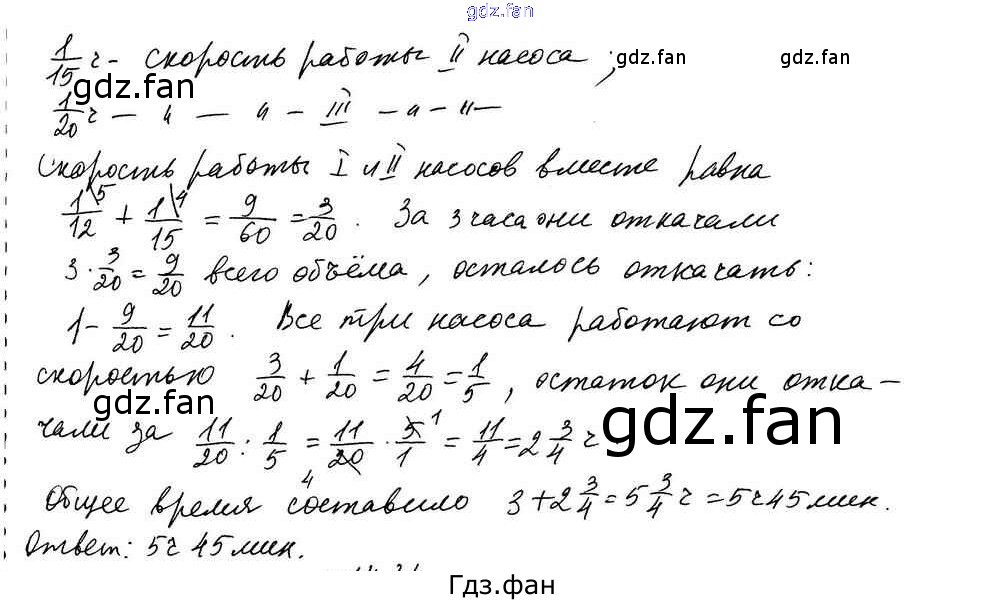 gdz.fan
1/15 ч - скорость работы II насоса ; gdz.fan gdz.fan
gdz.fan
1/20 ч — ч — ч — III — ч — ч —
Скорость работы I и II насосов вместе равна
1\5/12 + 1\4/15 = 9/60 = 3/20 . За 3 часа они откачали
3 · 3/20 = 9/20 всего объёма, осталось откачать:
1 - 9/20 = 11/20 . Все три насоса работают со
скоростью 3/20 + 1/20 = 4/20 = 1/5 , остаток они отка-
gdz.fan gdz.fan
чали за 11/20 : 1/5 = 11/20 4 · 5 1/1 = 11/4 = 2 3/4 ч
Общее время составило 3 + 2 3/4 = 5 3/4 ч = 5 ч 45 мин.
Ответ: 5 ч 45 мин.
Гдз.фан